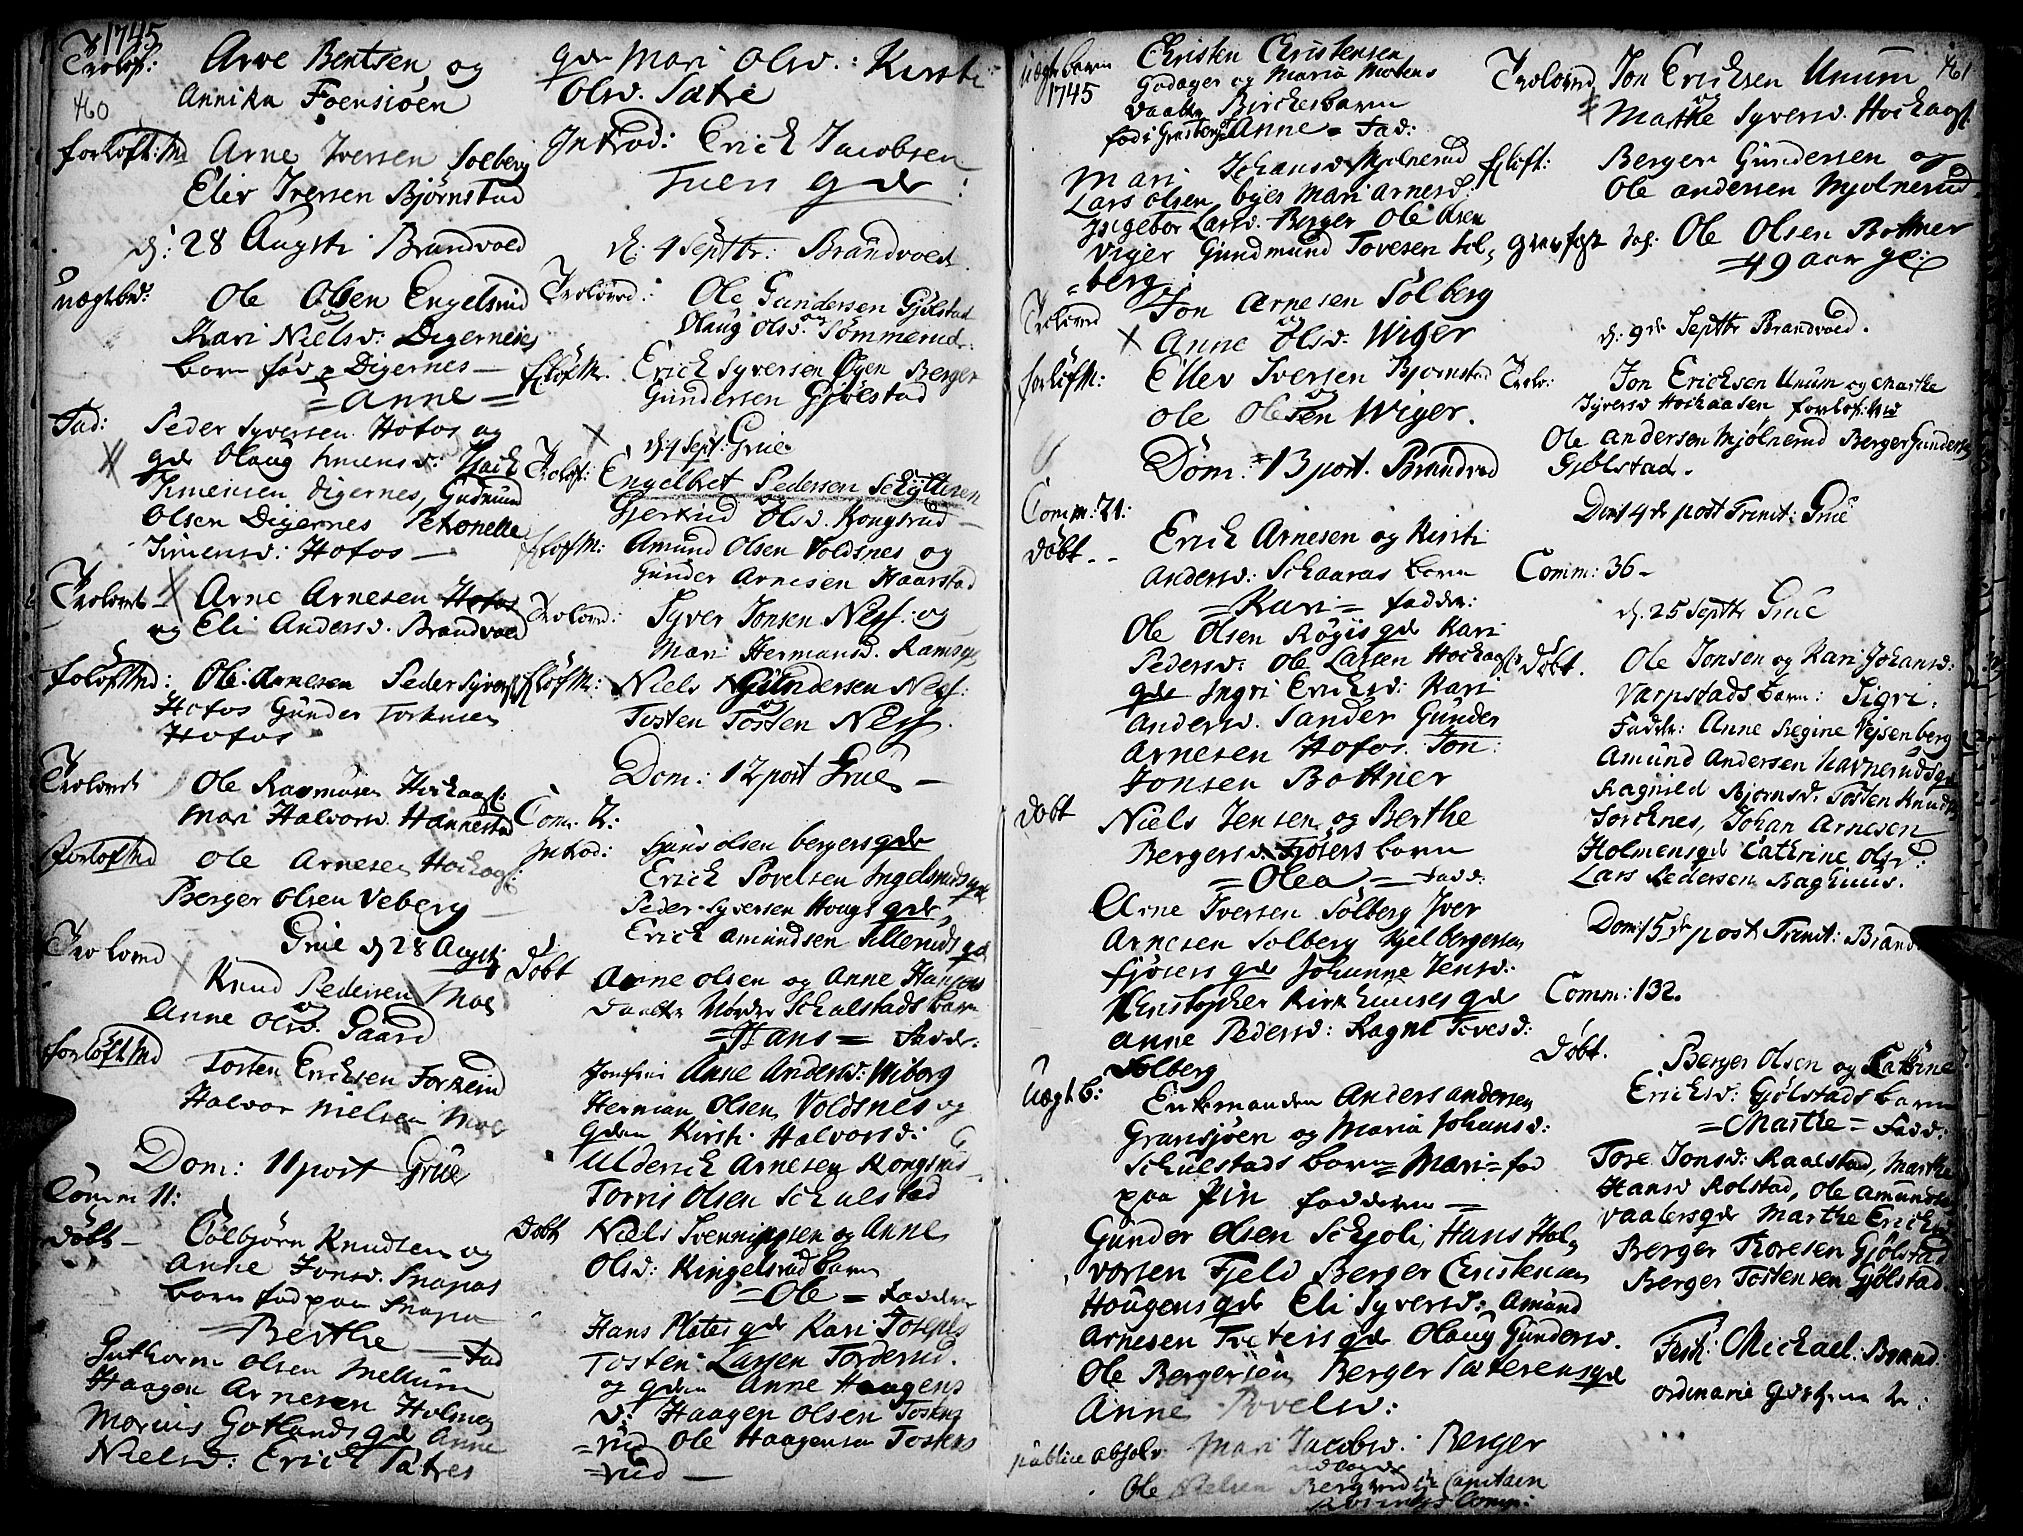 1745
Trolof: Arve Bentsen og
460 Annika Foensiöen
forloft: Md Arne Iversen Solberg
Eliv Iversen Björnstad
d: 28 Augsti Brandvoed
uægtbr: Ole Olsen Engelsrud
og
Kari Nielsd. Digernæs
barn fød p Digernes
= Anne =
Fad: Peder Syversen Hofos og
gde Olaug Simensd:
Simensen Digernes, Gudmund
Olsen Digernes Petronelle
Simensd: Hofos
Trolovet Arne Arnesen Hofos
og Eli Andersd. Brandvoed
foloftMd: Ole Arnesen Peder Syvers
Hofos Gunder Torkusen
Hofos
Trolovet Ole Rasmusen Hockaas
Mari Halvorsd. Hannestad
ForlofMd Ole Arnesen Hockaas:
Berger Olsen Veberg
Grue d 28 Augsti
Trolovd Knud Pedersen Moe
og
Anne Olsd. Gaard
forloftMd Tosten Ericksen Forkeim
Halvor Nielsen Moe
Dom: 11 post Grue
Comm 11:
døbt - Colbjörn Knudsen og
Anne Jonsd. Snapas
barn fød paa Snapa
= Berthe = Fad
Guthorm Olsen Mellum
Haagen Arnesen Holmen
Morius Gotlands gd Anne
Nielsd: Erick Sætres
gde Mari Olsd.: Kirsti
Olsd. Sætre
Introd: Erick Jacobsen
Tuers gde:
d: 4 Septbr: Brandvoed
Trolovd: Ole Gundersen Gjølstad
og
Olaug Olsd. Sommerud
flöfM. Erick Syversen Øgen Berger
Gundersen Gjölstad
d: 4 Sept: Grue
Trolof: Engelbret Pedersen Schÿttesen
og
Gjertrud Olsd. Kongsrud
flofM: Amund Olsen Voldsnes og
Gunder Arnesen Haarstad
Trolovd: Syver Jonsen Ness: og
Mari Hermansd. Ramsøe
flöfM: Niels Gundersen Ness:
og
Tosten Tosten Ness.
Dom: 12 post Grue
Com: 2:
Introd: Hans Olsen bergers gde
Erick Povelsen Ingelsruds gde
Peder Syversen Hougs gde,
Erick Amundsen Tilleruds gd
Døbt Arne Olsen og Anne Hansens
daatter Nordre Schulstads barn
= Hans = Fadde:
Jomfrue Anne Andersd: Wiborg
Herman Olsen Voldsnes og
gden Kirsti Halvorsd:
Ulderich Arnesen Kongsrud
Torris Olsen Schulstad
Døbt Niels Svenningsen og Anne
Olsd: Kingelsrud barn
= Ole = Fadder
Hans Plates gde Kari Josephs
Tosten Larsen Torderud.
og gden Anne Haagens
d: Haagen Olsen Toskes
=rud Ole Haagensen Toskes
=rud
Uægte barn 1745 Christen Christensen
Godager og Maria Mortens
daatter Birches barn
fød i Grasberg Anne = Fad:
Mari Johansd Mjølnerud
Lars Olsen, byes Mari Arnesd.
Ingebor Larsd. Berger Ole Olsen
Viger Gundmund Tovesen Sol,
=berg
Trolovd Jon Arnesen Solberg
og
Anne Olsd. Wiger
forlöfM: Ellev Iversen Bjornstad
og
Ole Olsen Wiger.
Dom: 13 post. Brandvod
Comm: 21:
døbt - - Erick Arnesen og Kirsti
Andersd: Schaaras barn
= Kari = fadder:
Ole Olsen Røgiis gde Kari
Pedersd: Ole Larsen Hockaas
gde Ingri Ericksd: Kari
Andersd. Sander Gunder
Arnesen Hofos. Jon
Jonsen Bottner
døbt Niels Jensen og Berthe
Bergersd: Fjøsers barn
= Olea = Fadd:
Arne Iversen Solberg Iver
Arnesen Solberg Kjel bergersen
fjøsers gde Johanne Jensd:
Christopher Kirkhuuses gde
Anne Pedersd: Ragne Tovesd:
Solberg
Uægt b: Enkemanden Anders Andersen
Gransjøen og Maria Johansd:
Schulstads barn = Mari = fød
paa Pin fadderne =
Gunder Olsen Schjoli, Hans Hal,
vorsen Fjeld Berger Christensen
Hougens gde Eli Syversd: Amund
Arnesen Freteris gde Olaug Gundersd.
Ole Bergersen Berger Sæterens gde
Anne Povelsd:
publice absolv: Mari Jacobsd: Berger
Ole Nielsen Bergerud Capitain
Comp:
461
Trolovd Jon Ericksen Unum
og
Marthe Syversd. Hockaas:
flöft: Berger Gundersen og
Ole Andersen Mjölnerud
Graf fæst Ole Olsen Bottner
=49 aar gl:
d: 9de Septbr Brandvoed.
Trolo: Jon Ericksen Unum og Marthe
Syversd Hockaasen forlof:Md
Ole Andersen Mjølnerud Berger Gunders
Gjölstad.
Dom: 14de post Trinit: Grue
Comm: 36 -
d. 25 Septbr Grue
Døbt. Ole Jonsen og Kari Johansd:
Varpstads barn: Sigri.
Faddr: Anne Regine Vejsenberg
Amund Andersen Havneruds gde
Ragnild Bjornsd. Tosten Knuds
Torcknes, Johan Arnesen
Holmens gd Cathrine Olsd:
Lars Pedersen Baghuus.
Dom: 15de post Trinit: Brand
Comm: 132.
Døbt. Berger Olsen og Kathrine
Ericksd: Gjölstads barn
= Marthe = Fadd:
Tore Jonsd: Raalstad, Marthe
Hansd Rolstad, Ole Amunds
Vaalers gde Marthe Ericks
Berger Thoresen Gjølstad
Berger Tostensen Gjølstad.
Fest: Michael: Brand:
ordinarie